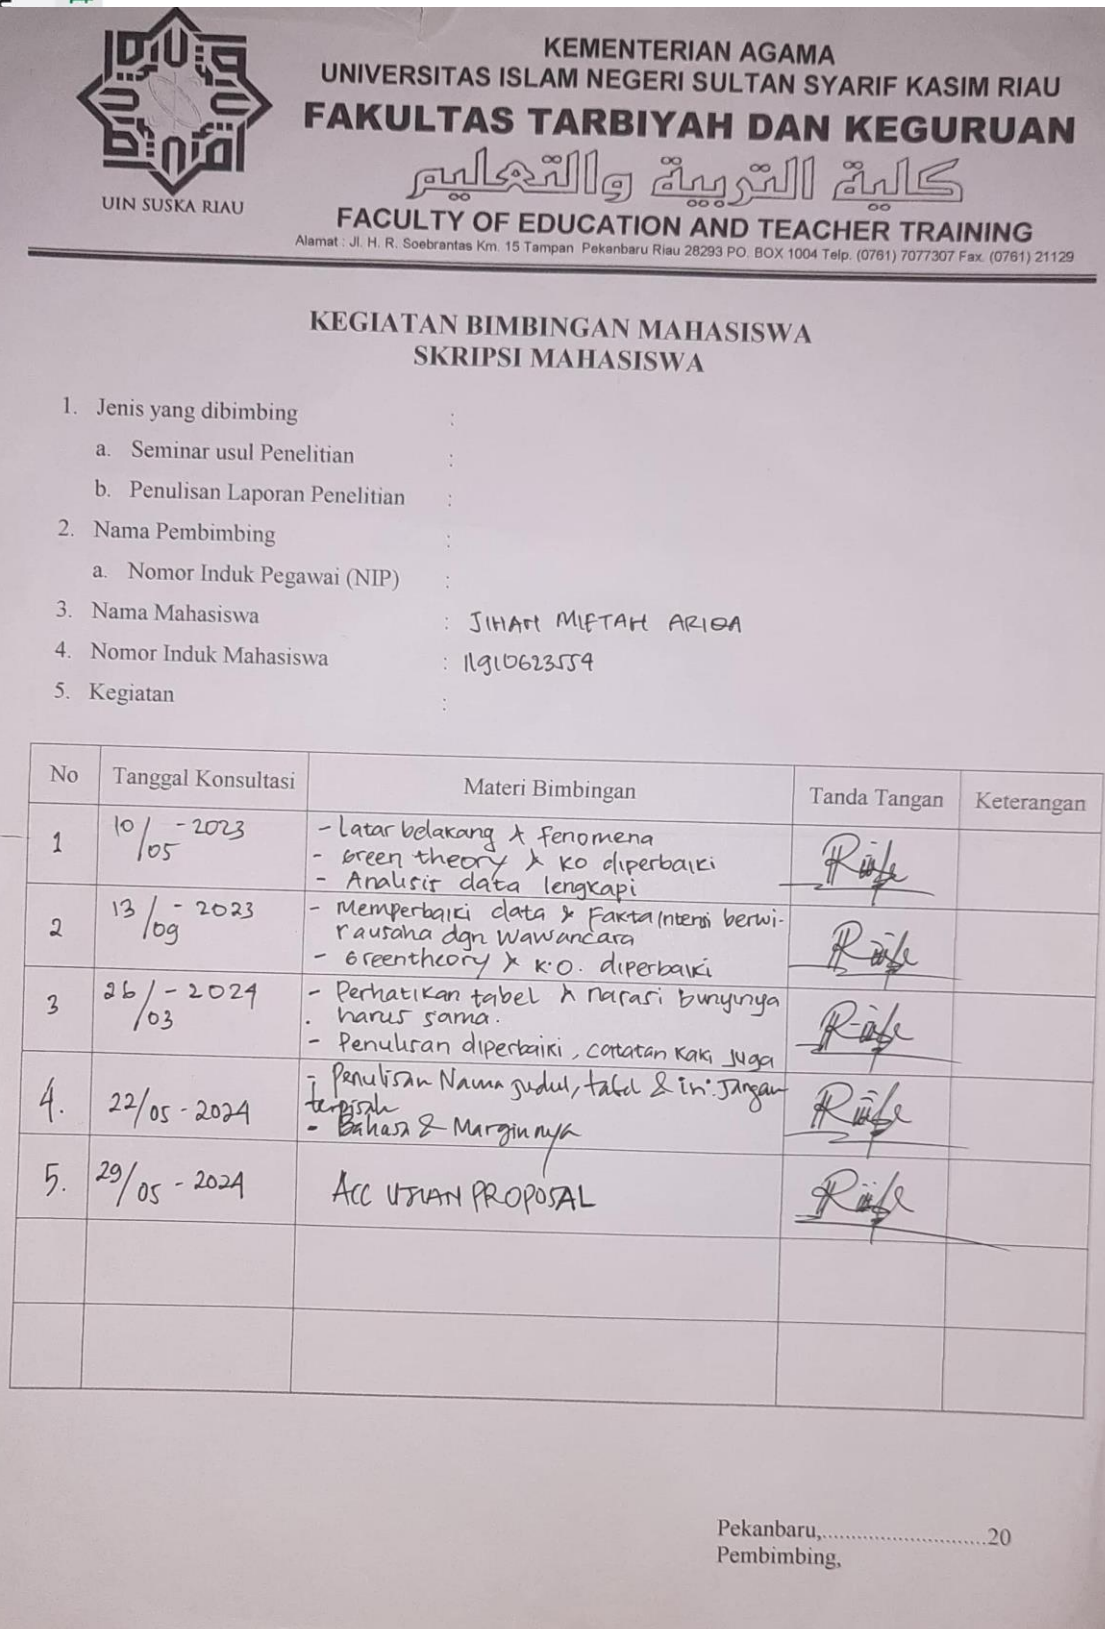 UIN SUSKA RIAU
KEMENTERIAN AGAMA
UNIVERSITAS ISLAM NEGERI SULTAN SYARIF KASIM RIAU
FAKULTAS TARBIYAH DAN KEGURUAN
كلية التربية والتعليم
FACULTY OF EDUCATION AND TEACHER TRAINING
Alamat : Jl. H. R. Soebrantas Km. 15 Tampan Pekanbaru Riau 28293 PO. BOX 1004 Telp. (0761) 7077307 Fax. (0761) 21129
KEGIATAN BIMBINGAN MAHASISWA
SKRIPSI MAHASISWA
1. Jenis yang dibimbing :
a. Seminar usul Penelitian :
b. Penulisan Laporan Penelitian :
2. Nama Pembimbing :
a. Nomor Induk Pegawai (NIP) :
3. Nama Mahasiswa : JIHAN MIFTAH ARIQA
4. Nomor Induk Mahasiswa : 11910623554
5. Kegiatan :
No Tanggal Konsultasi Materi Bimbingan Tanda Tangan Keterangan
1 10/05 - 2023 - Latar belakang & fenomena
- Green theory & KO diperbaiki
- Analisis data lengkapi
2 13/09 - 2023 - Memperbaiki data & Fakta Intensi berwi-
rausaha dgn wawancara
- Greentheory & K.O. diperbaiki
3 26/03 - 2024 - Perhatikan tabel & narasi bunyinya
harus sama.
- Penulisan diperbaiki, catatan kaki juga
4. 22/05 - 2024 - Penulisan Nama judul, tabel & isi: Jangan
terpisah
- Bahasa & Marginnya
5. 29/05 - 2024 ACC UJIAN PROPOSAL
Pekanbaru,............................20
Pembimbing,